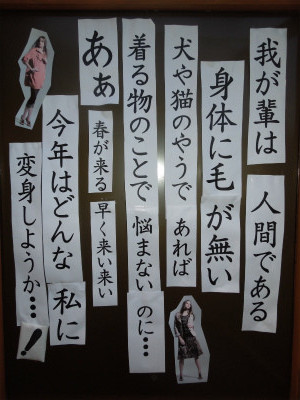 我が輩は 人間である
身体に毛が無い
犬や猫のやうで あれば
着る物のことで 悩まない のに…
あぁ 春が来る 早く来い来い
今年はどんな 私に
変身しようか…！